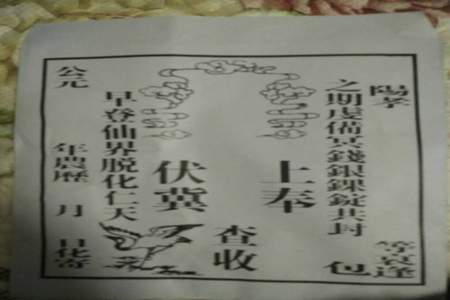 陽孝 等哀逢
之期虔備冥錢銀錁錠共封 包
上奉
查收
伏冀
早登仙界脱化仁天
公元 年農歷 月 日化寄